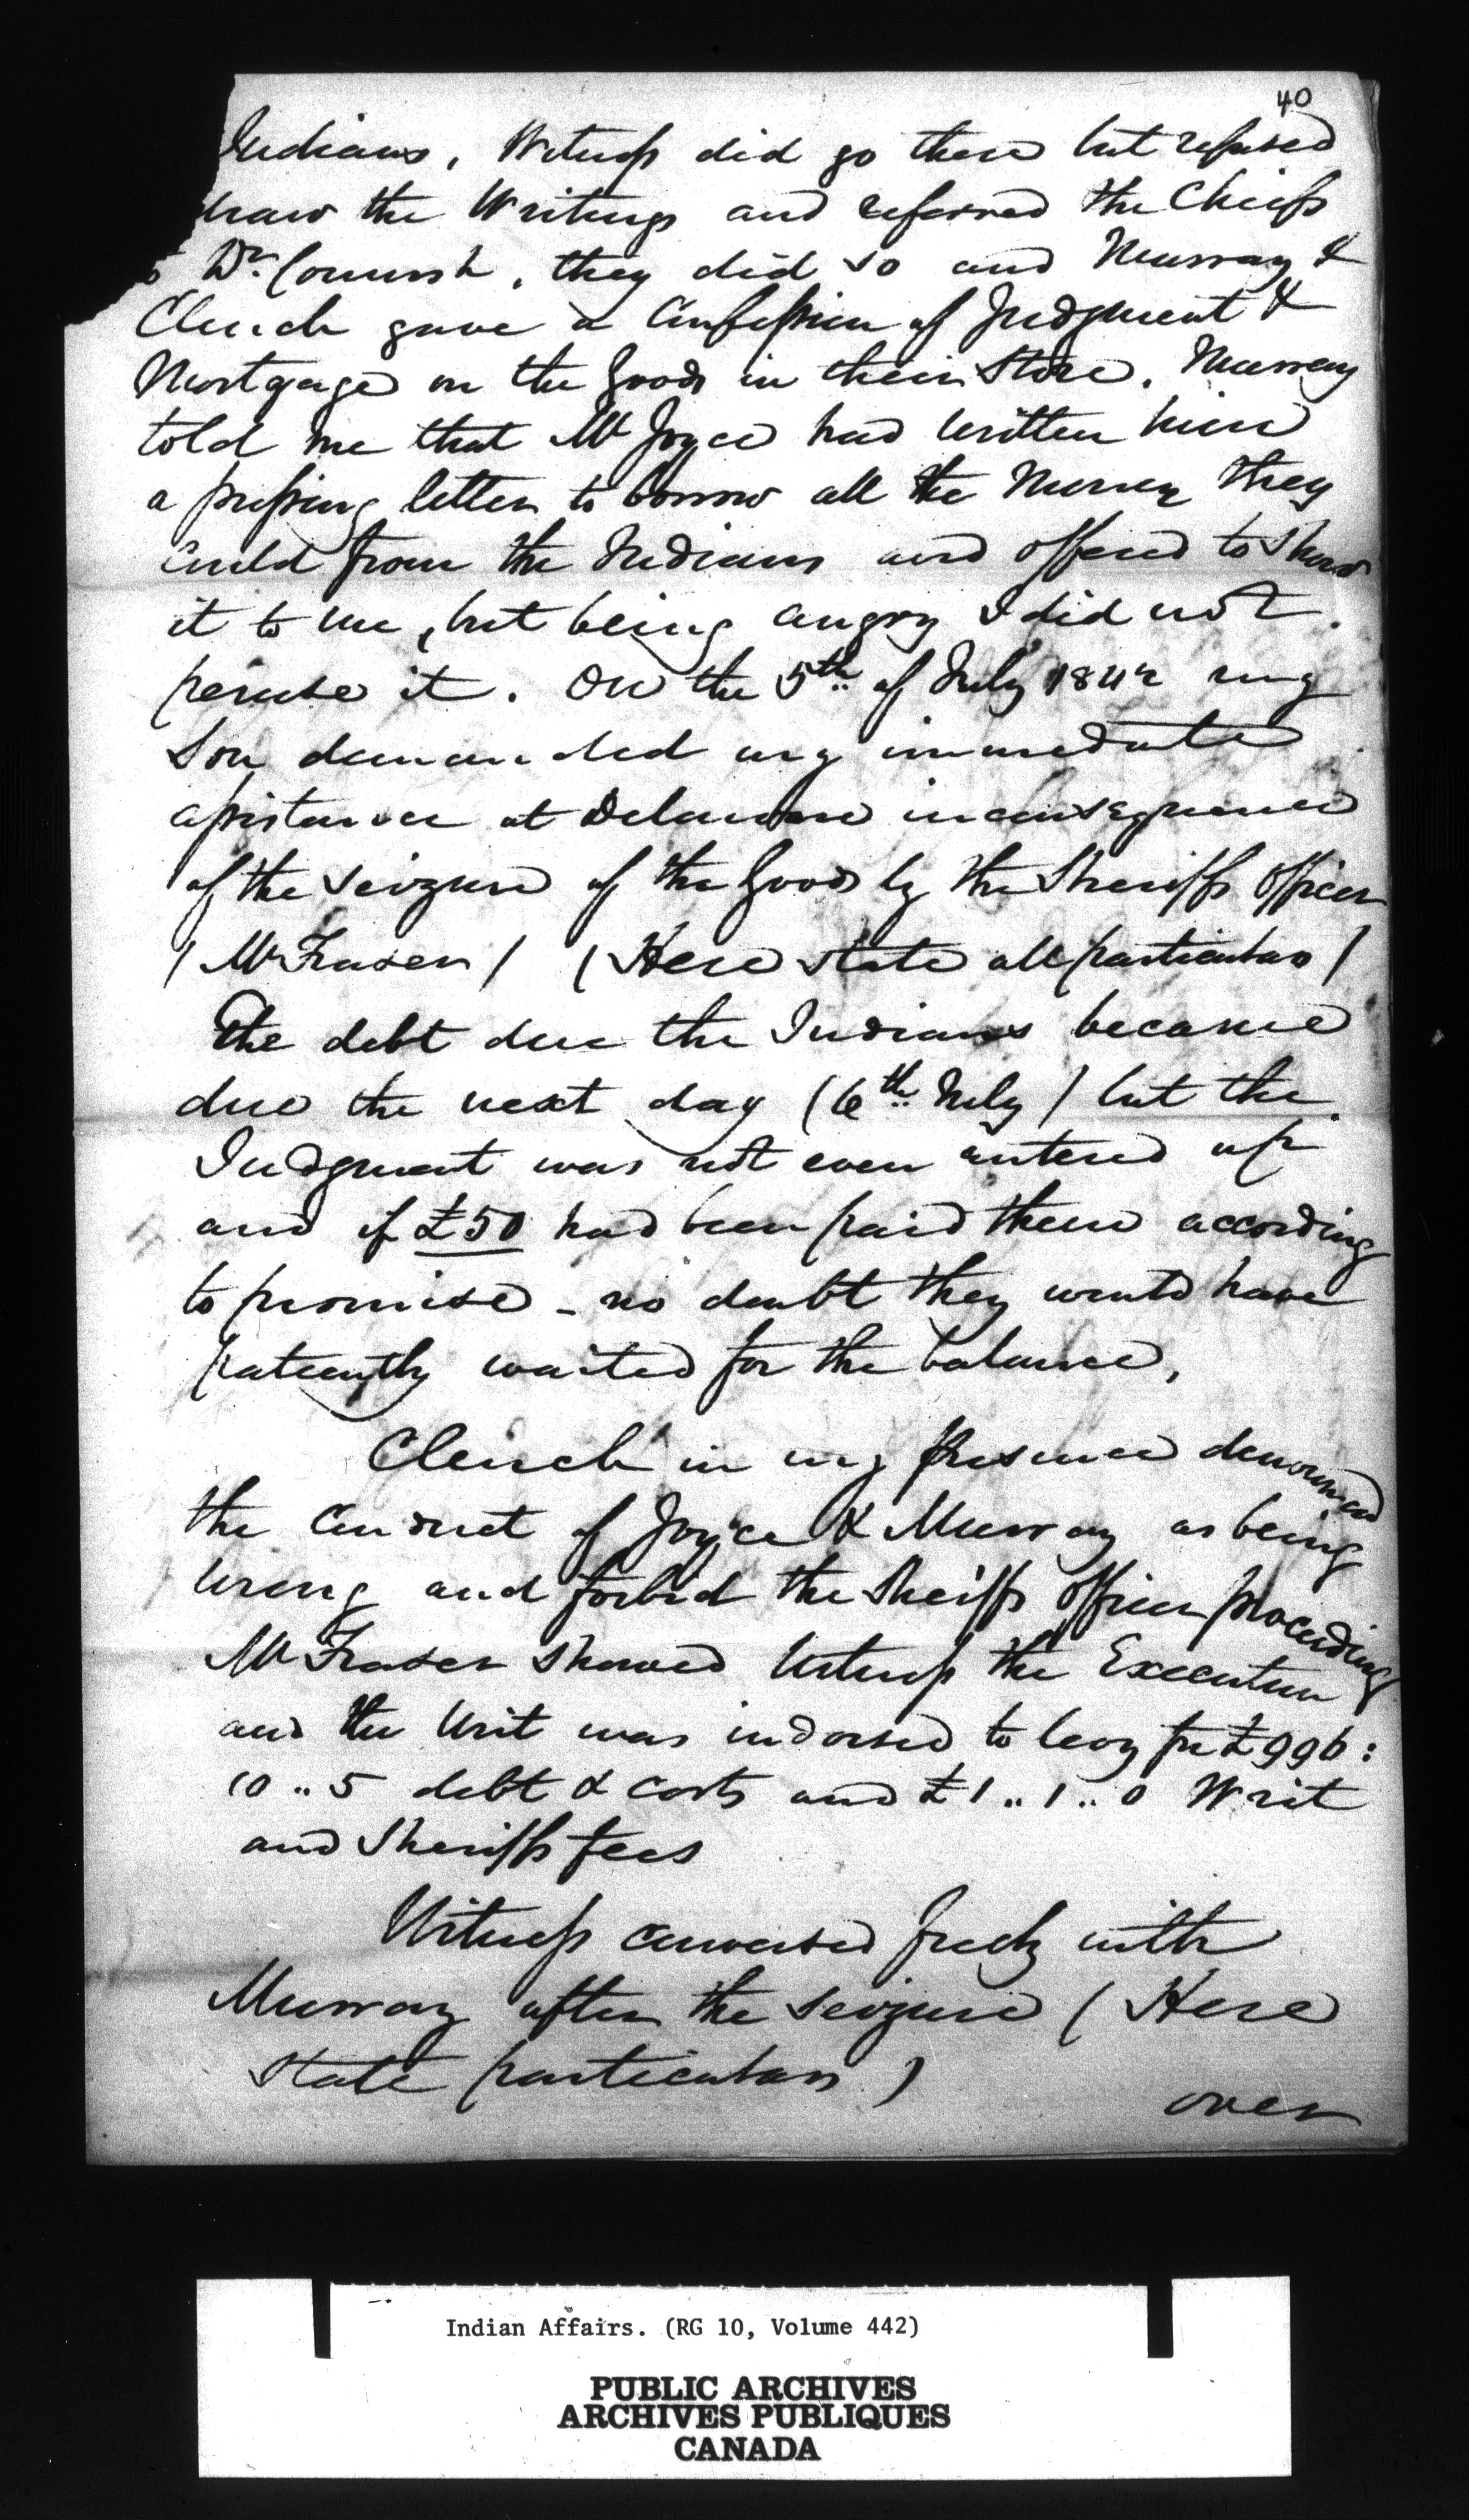 40
Indians, Witness did go there but refused
draw the Writings and referred the Chiefs
Dr. Cornish, they did so and Murray &
Clench gave a Confession of Judgment &
Mortgage on the Goods in their Store. Murray
told me that Mr Joyce had written him
a pressing letter to borrow all the Money they
could from the Indians and offered to show
it to me, but being angry I did not
peruse it. On the 5th of July 1842 my
Son demanded my immediate
assistance at Delaware in consequence
of the seizure of the Goods by the Sheriffs Officer
(Mr Fraser) (Here state all particulars)
The debt due the Indians became
due the next day (6th July) but the
Judgment was not even entered up
and if £50 had been paid them according
to promise - no doubt they would have
patiently waited for the balance,
Clench in my presence denounced
the Conduct of Joyce & Murray as being
wrong and forbid the Sheriffs officer proceeding
Mr Fraser showed Witness the Execution
and the Writ was indorsed to levy for £996:
10..5 debt & costs and £1..1..0 Writ
and Sheriffs fees
Witness conversed freely with
Murray after the seizure (Here
state particulars)
over
Indian Affairs. (RG 10, Volume 442)
PUBLIC ARCHIVES
ARCHIVES PUBLIQUES
CANADA